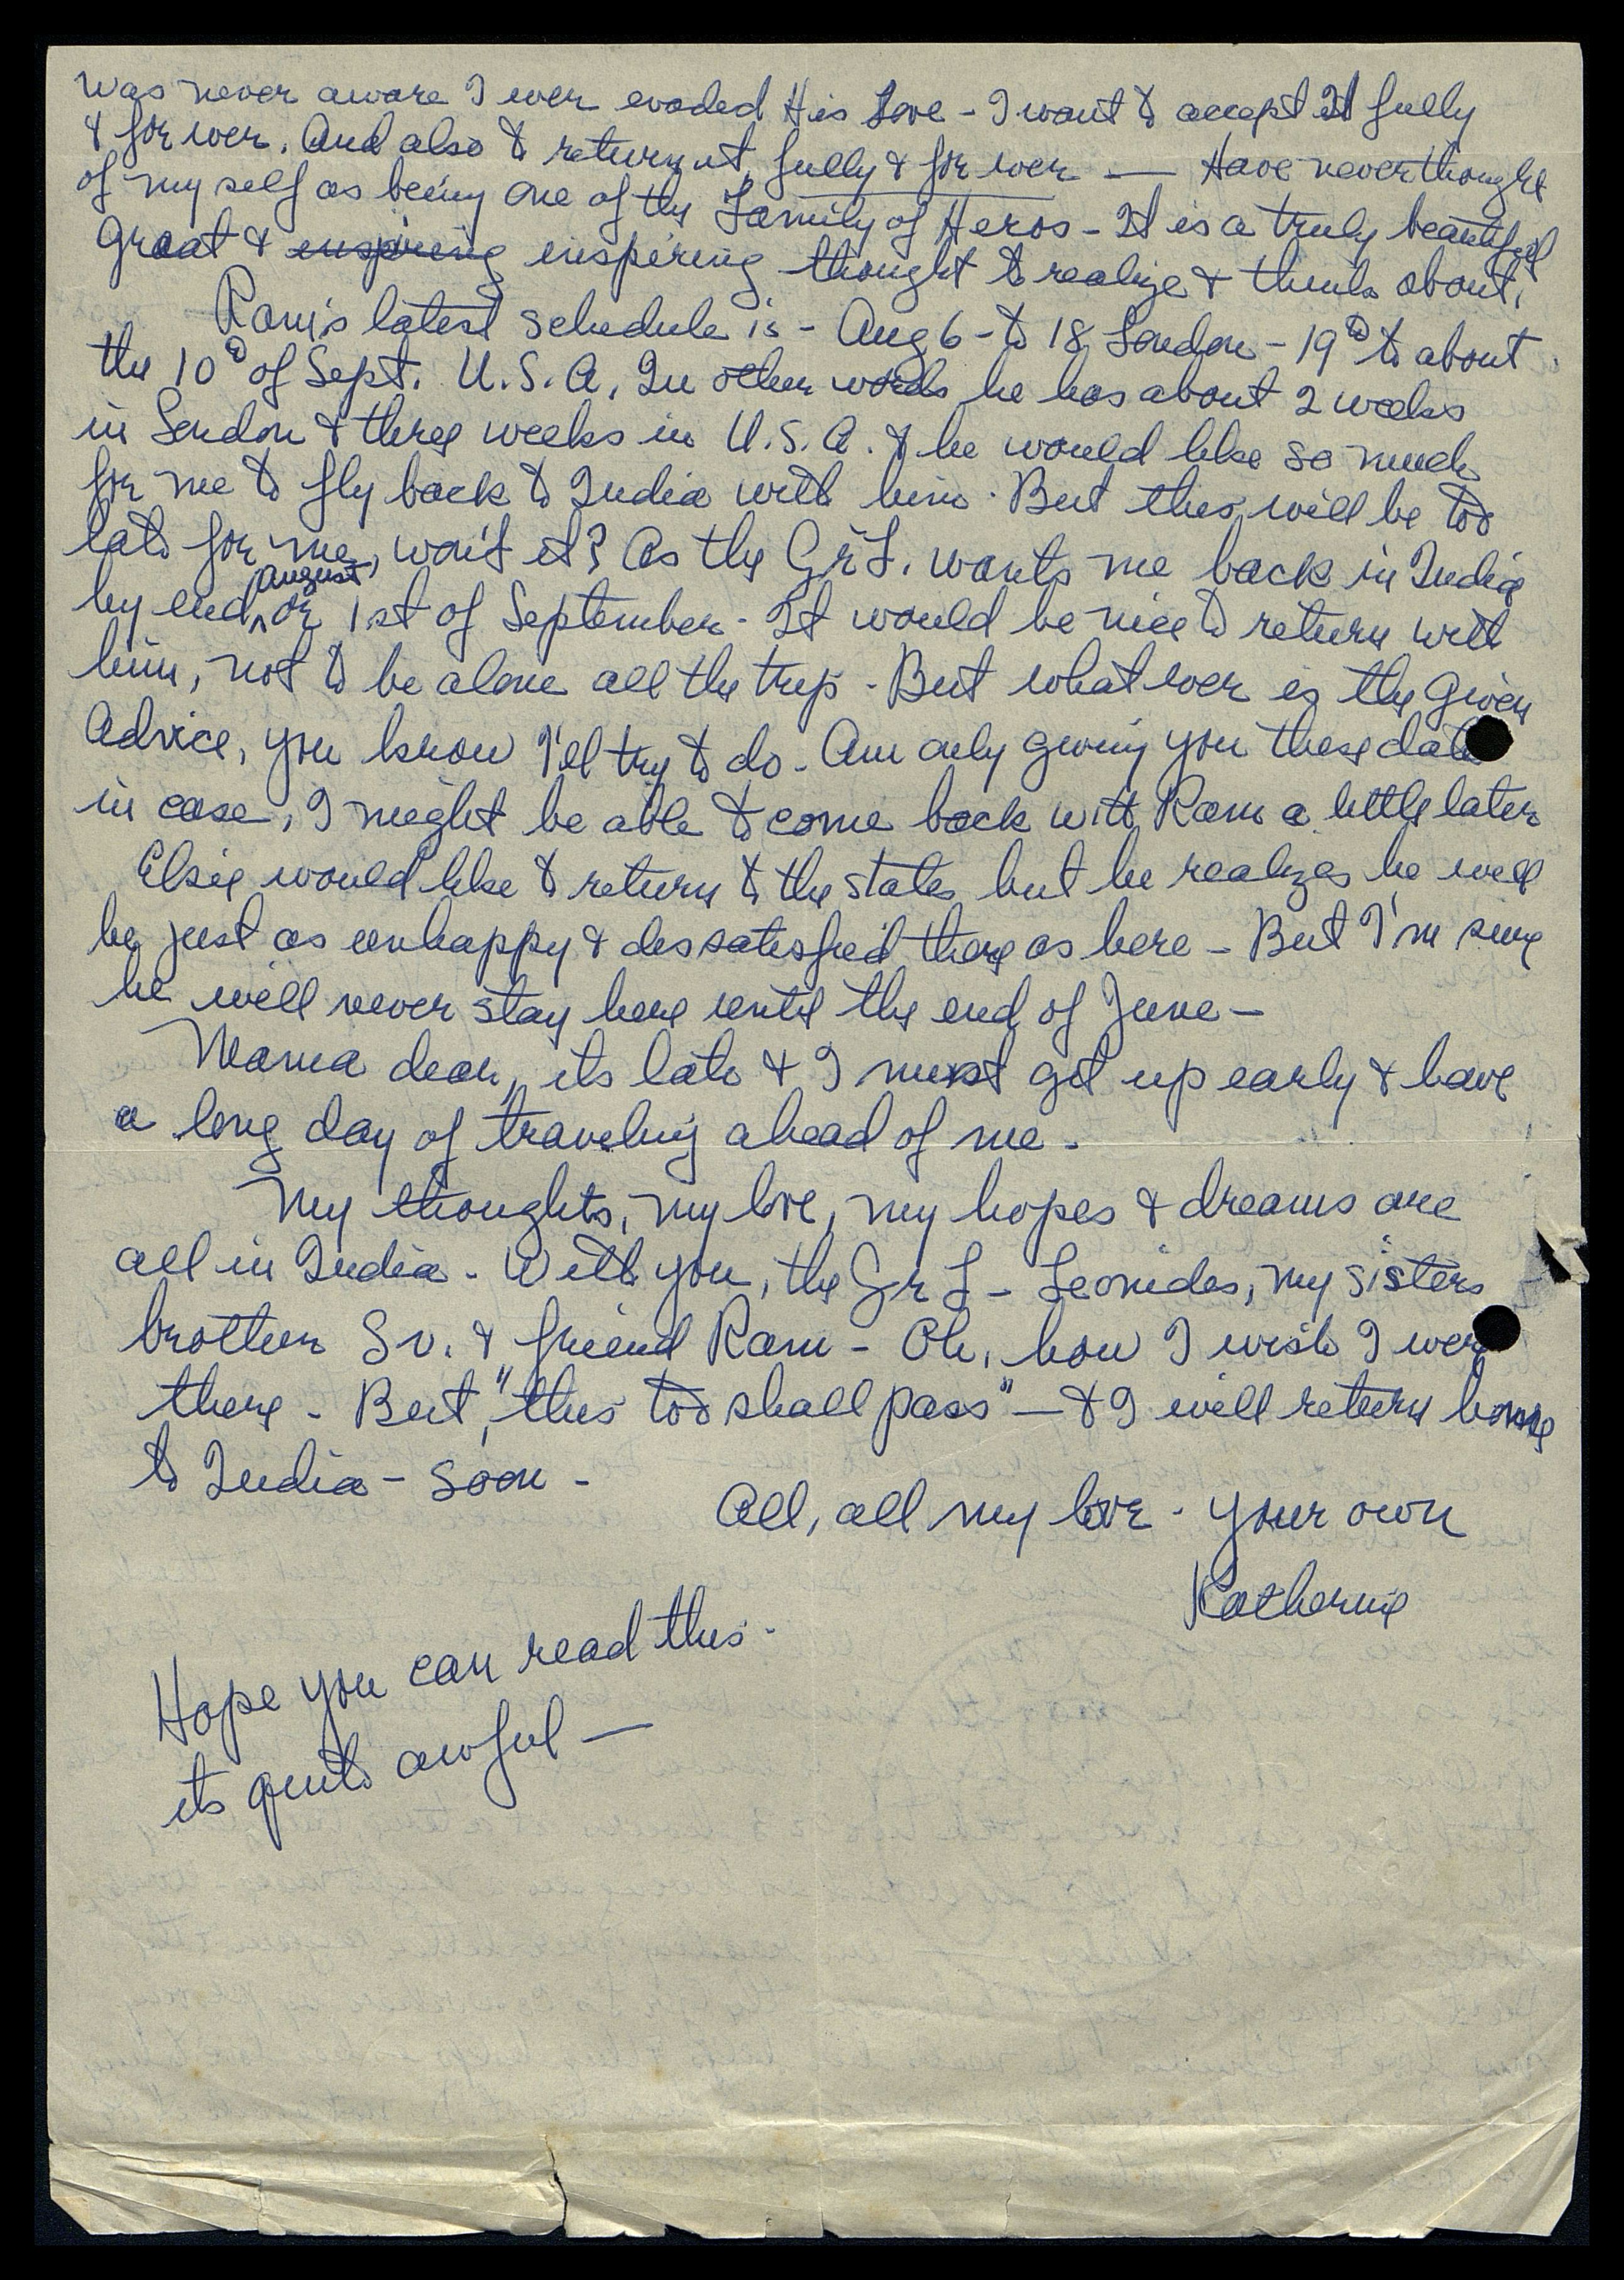 was never aware I ever evaded His Love - I want to accept It fully
& for ever. And also to return it, fully & for ever — Have never thought
of my self as being one of the Family of Heros - It is a truly beautiful
great & enspiring inspiring thought to realize & think about.
Ram's latest schedule is - Aug 6 - to 18 London - 19th to about
the 10th of Sept. U.S.A. In other words he has about 2 weeks
in London & three weeks in U.S.A. & he would like so much
for me to fly back to India with him. But this will be too
late for me, won't it? As the Gr L. wants me back in India
by end August, or 1st of September - It would be nice to return with
him, not to be alone all the trip - But what ever is the given
Advice, you know I'll try to do - Am only giving you these dates
in case, I might be able to come back with Ram a little later
Elsie would like to return to the states but he realizes he will
be just as unhappy & dissatisfied there as here - But I'm sure
he will never stay here until the end of June -
Mama dear, its late & I must get up early & have
a long day of traveling ahead of me -
My thoughts, my love, my hopes & dreams are
all in India - With you, the Gr L - Leonides, my sisters
brother Sv. & friend Ram - Oh, how I wish I were
there - But, "this too shall pass" - & I will return home
to India - soon -
All, all my love - your own
Katherine
Hope you can read this -
its quite awful -